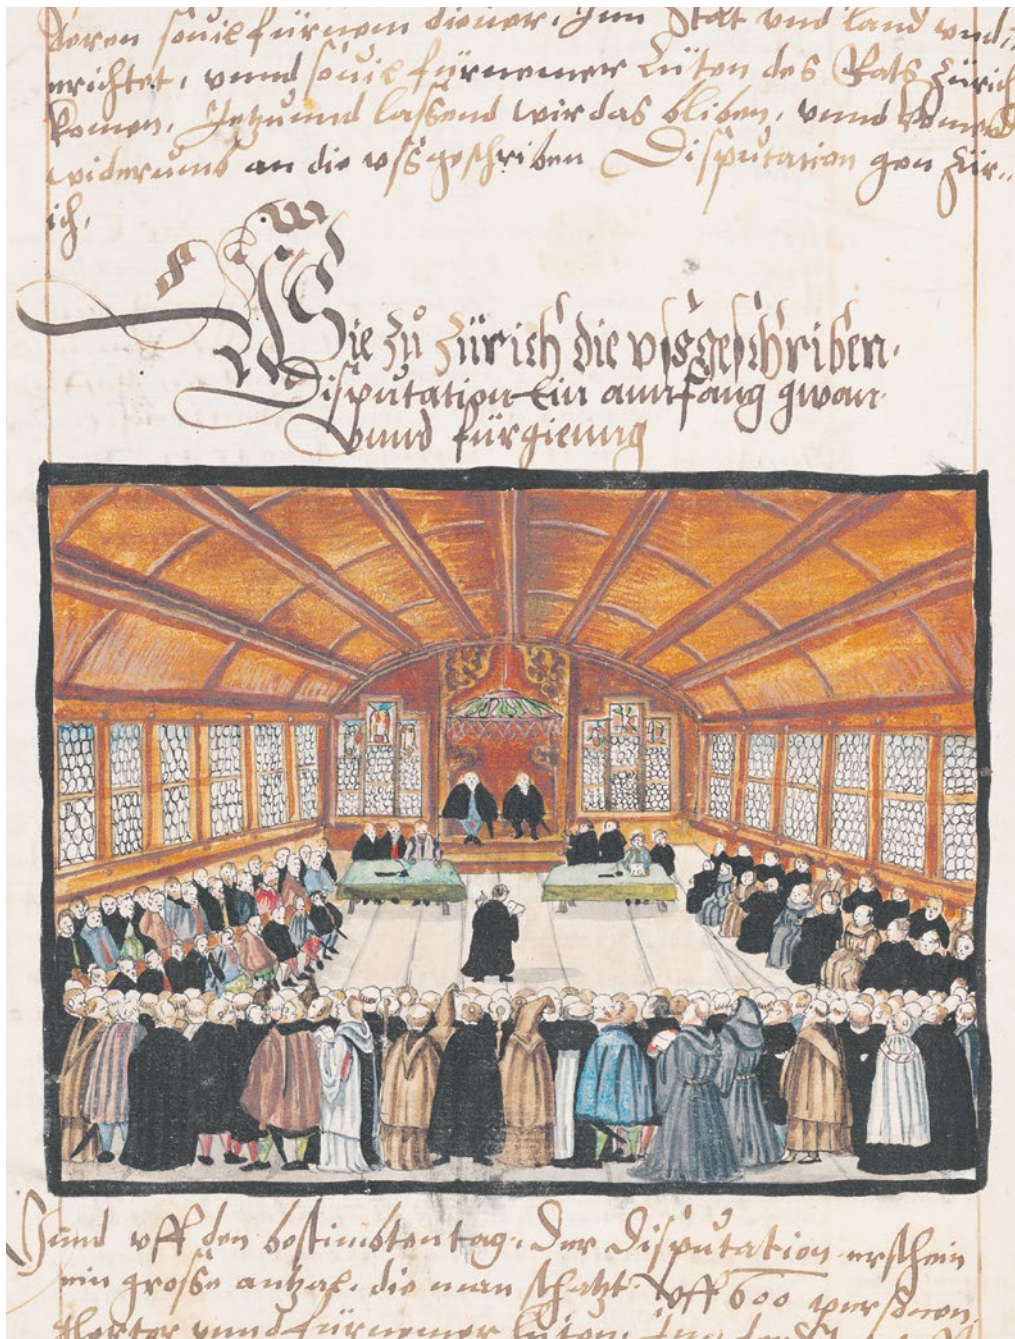 deren souil fürnem diener, Inn Stat vnd land vnd
erichtet, vnnd souil fürnemer Lüten des Rats Zürich
komen, Jetzund lassend wir das bliben, vnnd komend
widerumb an die vssgeschriben Disputation gen Zür-
ich,
Wie zů Zürich die vssgeschriben
Disputation Ein annfang gwan
Vnnd fürgieng
Vnnd vff den bestimbten tag, der Disputation erschein
ein grosse anzal, die man schatzt vff 600 personen,
glerter vnnd fürnemer lüten,